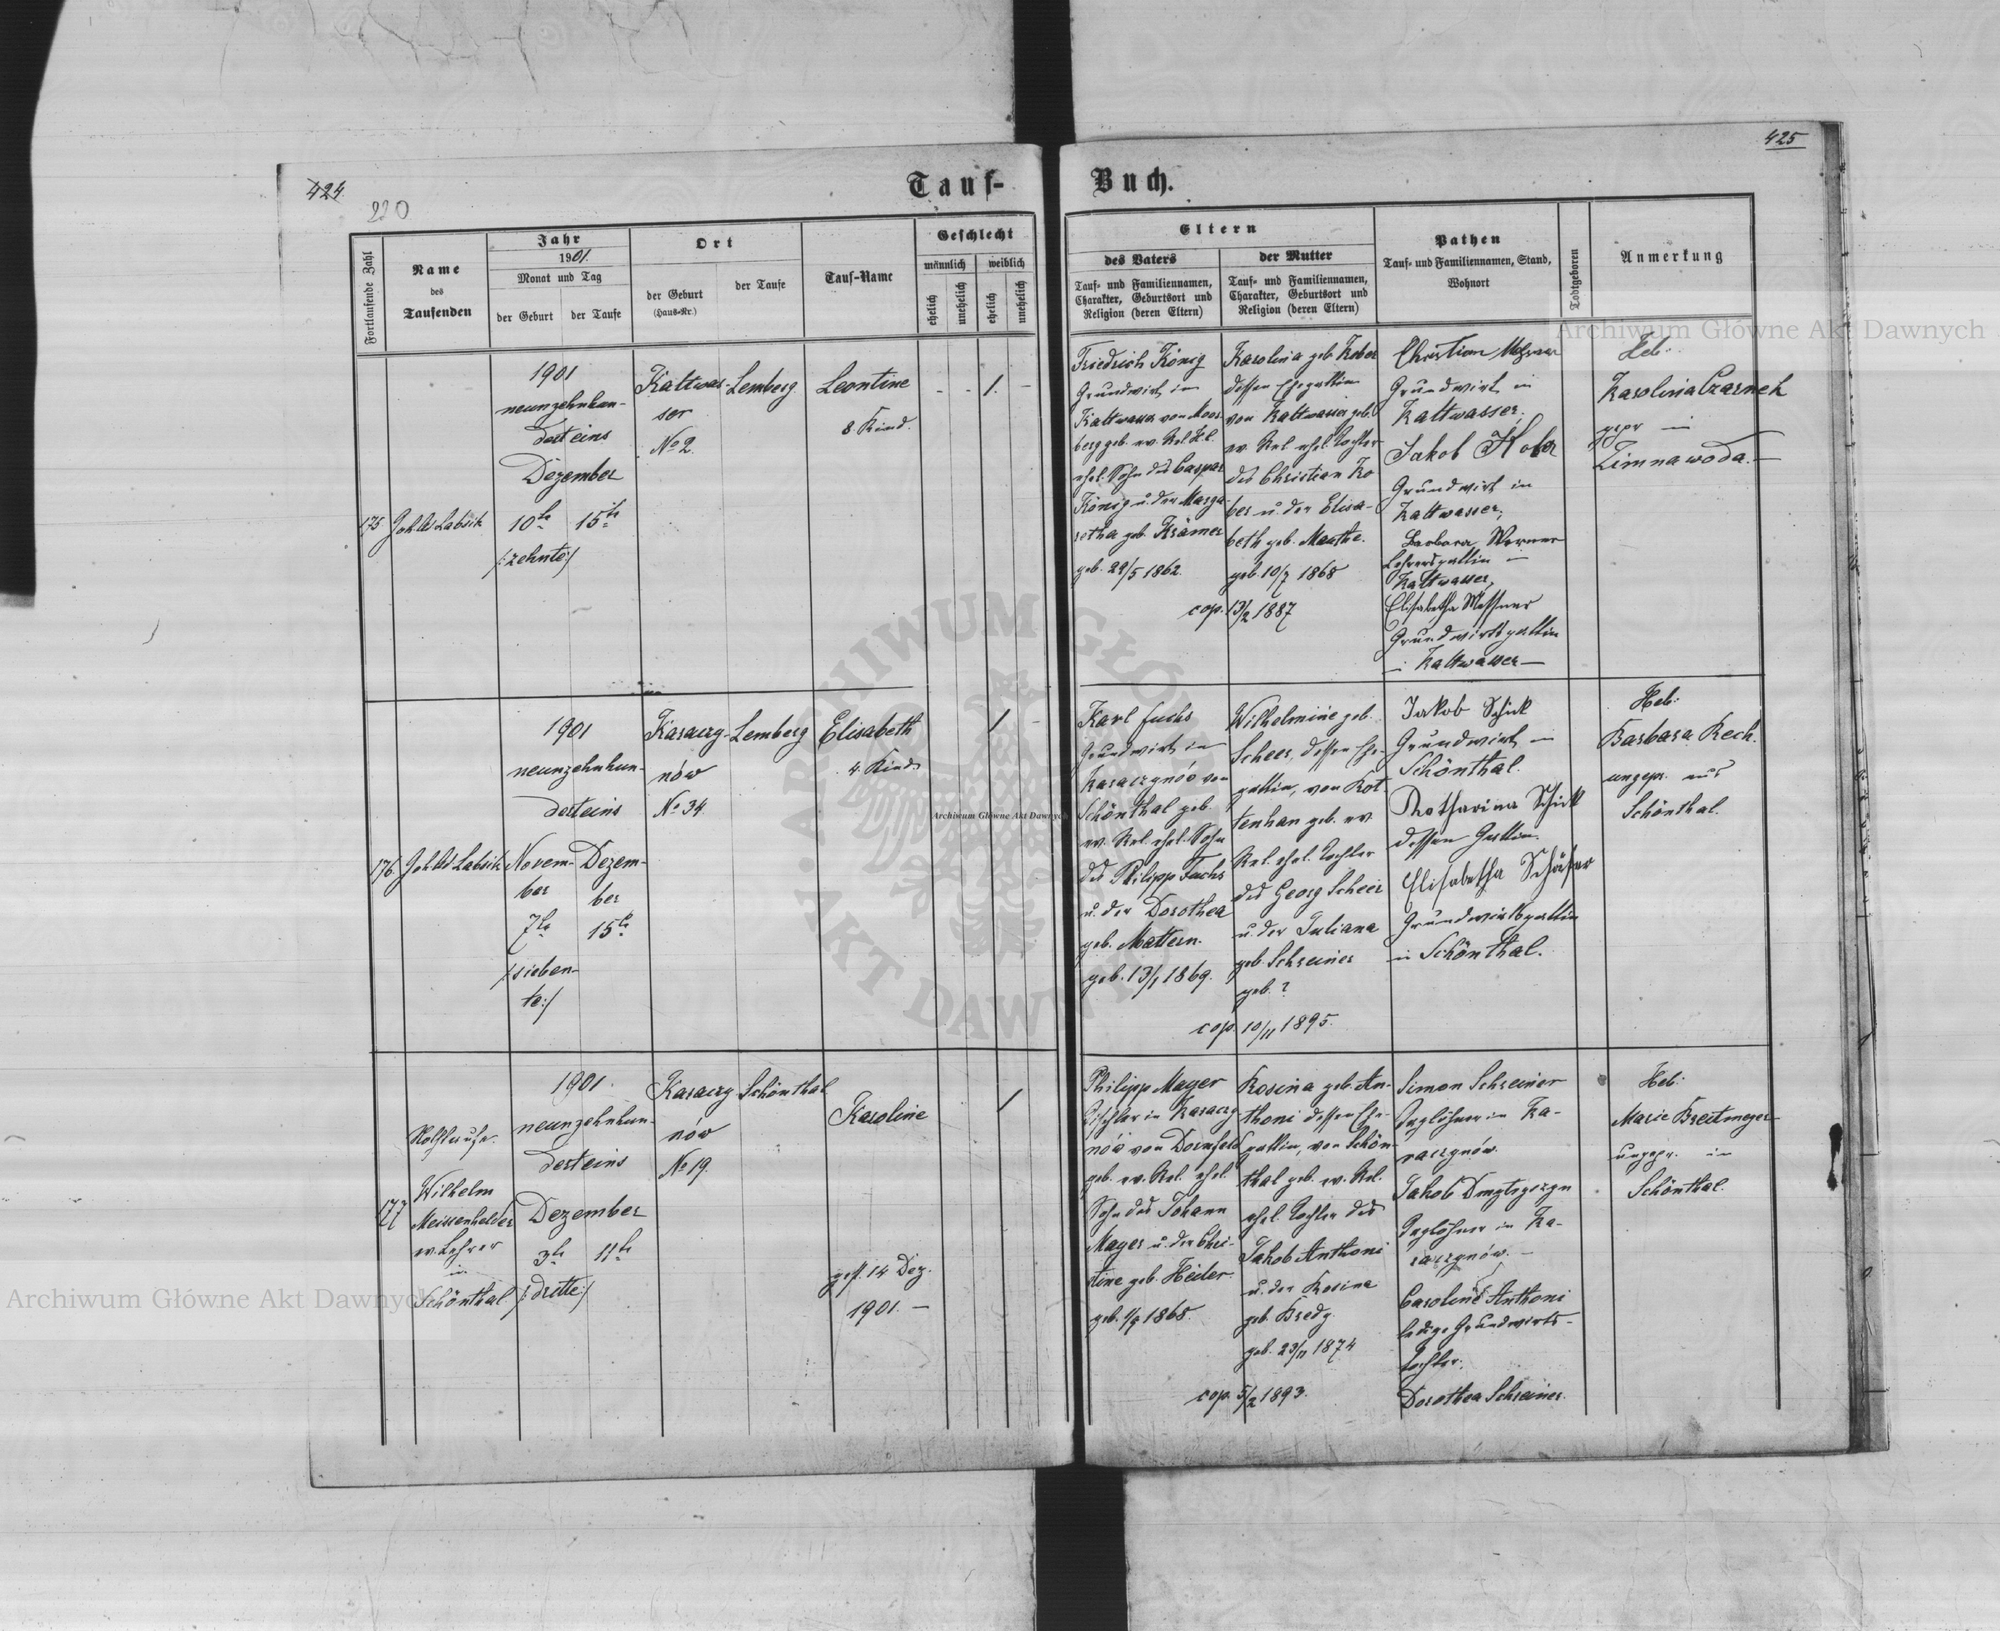 424
220
Tauf-
Fortlaufende Zahl
Name
des
Taufenden
Jahr
1901.
Monat und Tag
der Geburt
der Taufe
Ort
der Geburt
(Haus-Nr.)
der Taufe
Tauf-Name
Geschlecht
männlich
weiblich
ehelich
unehelich
ehelich
unehelich
175
1901
neunzehnhun-
derteins
Dezember
10te 15te
/:zehnte:/
Kaltwas-
ser
No 2.
Lemberg.
Leontine
8. Kind.
- - 1. -
176.
1901
neunzehnhun-
derteins
Novem-
ber
7te
/:sieben-
te:/
Dezem-
ber
15te
Karaczy-
nów
No 34.
Lemberg
Elisabeth
4. Kind
1 -
177
Wilhelm
Meissenhelder
ev. Lehrer
in
Schönthal
1901.
neunzehnhun-
derteins
Dezember
3te 11te
/:dritte:/
Karaczy-
nów
No 19.
Schönthal
Karoline
gest. 14 Dez.
1901. —
1
425
Buch.
Eltern
des Vaters
Tauf- und Familiennamen,
Charakter, Geburtsort und
Religion (deren Eltern)
der Mutter
Tauf- und Familiennamen,
Charakter, Geburtsort und
Religion (deren Eltern)
Pathen
Tauf- und Familiennamen, Stand,
Wohnort
Todtgeboren
Anmerkung
Friedrich König
Grundwirt in
Kaltwasser von
berg geb. ev. Rel.
ehel. Sohn des Caspar
König u. der Marga-
retha geb. Krämer
geb. 29/5 1862.
Karolina geb. Kober
dessen Ehegattin
von Kaltwasser geb.
ev. Rel. ehel. Tochter
des Christian Ko
ber u. der Elisa-
beth geb. Manthe.
geb. 10/7 1868
cop. 13/2 1887
Christian
Grundwirt in
Kaltwasser;
Jakob Kober
Grundwirt in
Kaltwasser;
Barbara Werner
Lehrersgattin in
Kaltwasser,
Elisabetha Messner
Grundwirtsgattin
in Kaltwasser —
Heb:
Karolina Czarnek
gepr in
Zimnawoda. —
Karl Fuchs
Grundwirt in
Karaczynów von
Schönthal geb.
ev. Rel. ehel. Sohn
des Philipp Fuchs
u. der Dorothea
geb. Mattern.
geb. 13/1 1869.
Wilhelmine geb.
Scheer, dessen Ehe-
gattin, von Kot
tenhan geb. ev
Rel. ehel. Tochter
des Georg Scheer
u. der Juliana
geb. Schreiner
geb. ?
cop. 10/11 1895.
Jakob Schick
Grundwirt in
Schönthal.
Katharina Schick
dessen Gattin.
Elisabetha Schäfer
Grundwirtsgattin
in Schönthal.
Heb:
Barbara Rech.
ungepr. aus
Schönthal.
Philipp Mayer
Tischler in Karaczy
nów von Dornfeld
geb. ev. Rel. ehel.
Sohn des Johann
Mayer u. der Chri-
stine geb. Heiler.
geb. 1/9 1868.
Rosina geb. An-
thoni dessen Ehe-
gattin, von Schön-
thal geb. ev. Rel.
ehel. Tochter des
Jakob Anthoni
u. der Rosina
geb. Bredy.
geb. 23/11 1874
cop. 5/2 1893.
Simon Schreiner
Taglöhner in Ka-
raczynów.
Jakob
Taglöhner in Ka-
raczynów. —
Caroline Anthoni
ledige Grundwirts-
tochter.
Dorothea Schreiner.
Heb:
Marie Breitmeyer
ungepr. in
Schönthal.
Archiwum Główne Akt Dawnych
Archiwum Główne Akt Dawnych
Archiwum Główne Akt Dawnych